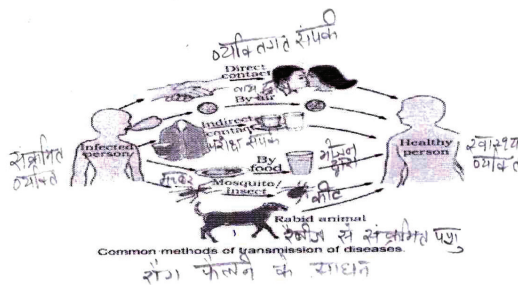 व्यक्तिगत संपर्क
Direct
contact
By air
Indirect
contact
परोक्ष संपर्क
Infected
person
संक्रमित
व्यक्ति
Healthy
person
स्वास्थ्य
व्यक्ति
By
food
भोजन
द्वारा
मच्छर
Mosquito/
insect
कीट
Rabid animal
रैबीज से संक्रमित पशु
Common methods of transmission of diseases
रोग फैलने के साधन